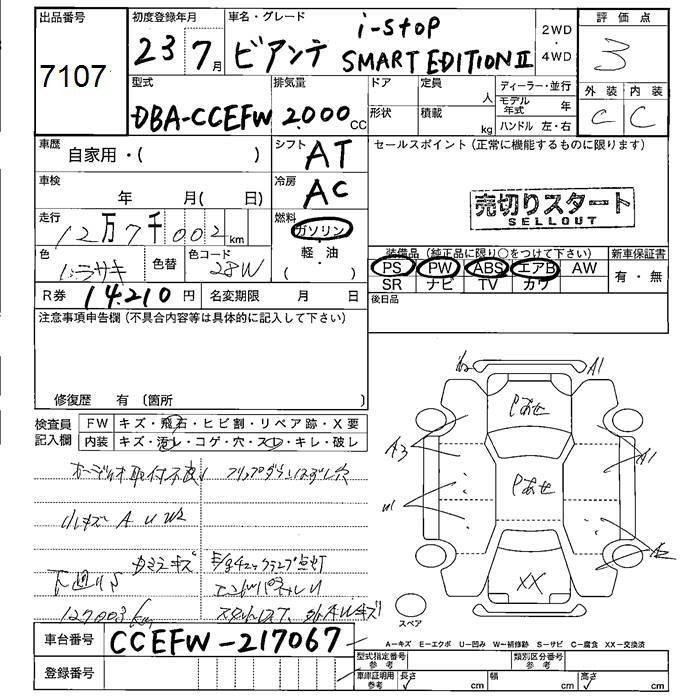 出品番号
7107
初度登録年月
23 7月
車名・グレード
ビアンテ
i-stop
SMART EDITION II
2WD
・
4WD
評価点
3
外装 内装
C C
型式
DBA-CCEFW
排気量
2000 CC
ドア
形状
定員 人
積載 kg
ディーラー・並行
モデル年式 年
ハンドル 左・右
車歴
自家用・( )
シフト
AT
セールスポイント (正常に機能するものに限ります)
車検
年 月( 日)
冷房
AC
売切りスタート
SELLOUT
走行
12万7千002km
燃料
ガソリン
軽・油
( )
色
ムラサキ
色替
色コード
28W
装備品 (純正品に限り○をつけて下さい)
PS PW ABS エアB AW
SR ナビ TV カワ
新車保証書
有・無
R券 14210円
名変期限 月 日
後日品
注意事項申告欄 (不具合内容等は具体的に記入して下さい)
修復歴 有 (箇所 )
検査員
記入欄
FW キズ・飛石・ヒビ割・リペア跡・X要
内装 キズ・汚レ・コゲ・穴・スレ・キレ・破レ
オーディオ取付不良
フリップダウンはずし穴
小キズ A U W2
カウラキズ
E/gチェックランプ点灯
下廻りS
エンドパネルU
127003km
A1
Pあせ
A3
A1
Pあせ
A2
XX
スペア
車台番号 CCEFW-217067
登録番号
A−キズ E−エクボ U−凹み W−補修跡 S−サビ C−腐食 XX−交換済
型式指定番号
参考
類別区分番号
参考
車庫証明用
参考
長さ cm
幅 cm
高さ cm